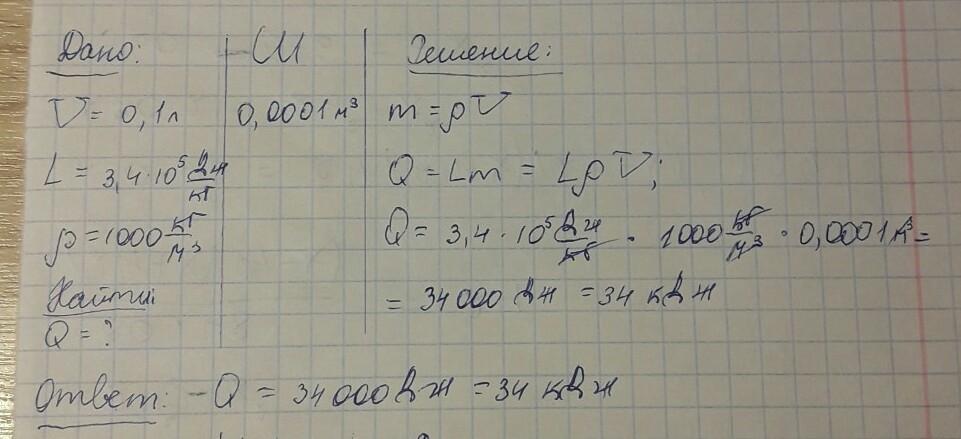 Дано:
СИ
Решение:
V = 0,1л
0,0001 м³
m = ρV
L = 3,4·10⁵ Дж/кг
Q = Lm = LρV;
ρ = 1000 кг/м³
Q = 3,4·10⁵ Дж/кг · 1000 кг/м³ · 0,0001 м³ =
Найти:
= 34000 Дж = 34 кДж
Q = ?
Ответ: -Q = 34000 Дж = 34 кДж